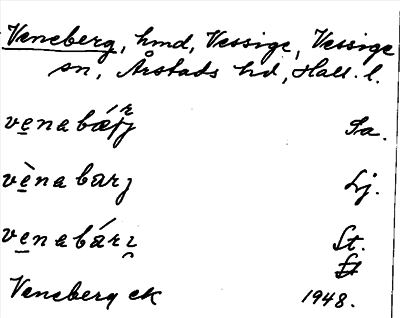 Veneberg, hmd, Vessige, Vessige
sn, Årstads hd, Hall. l.
Sa.
vènabarȷ Lj.
St.
St
Veneberg ek 1948.